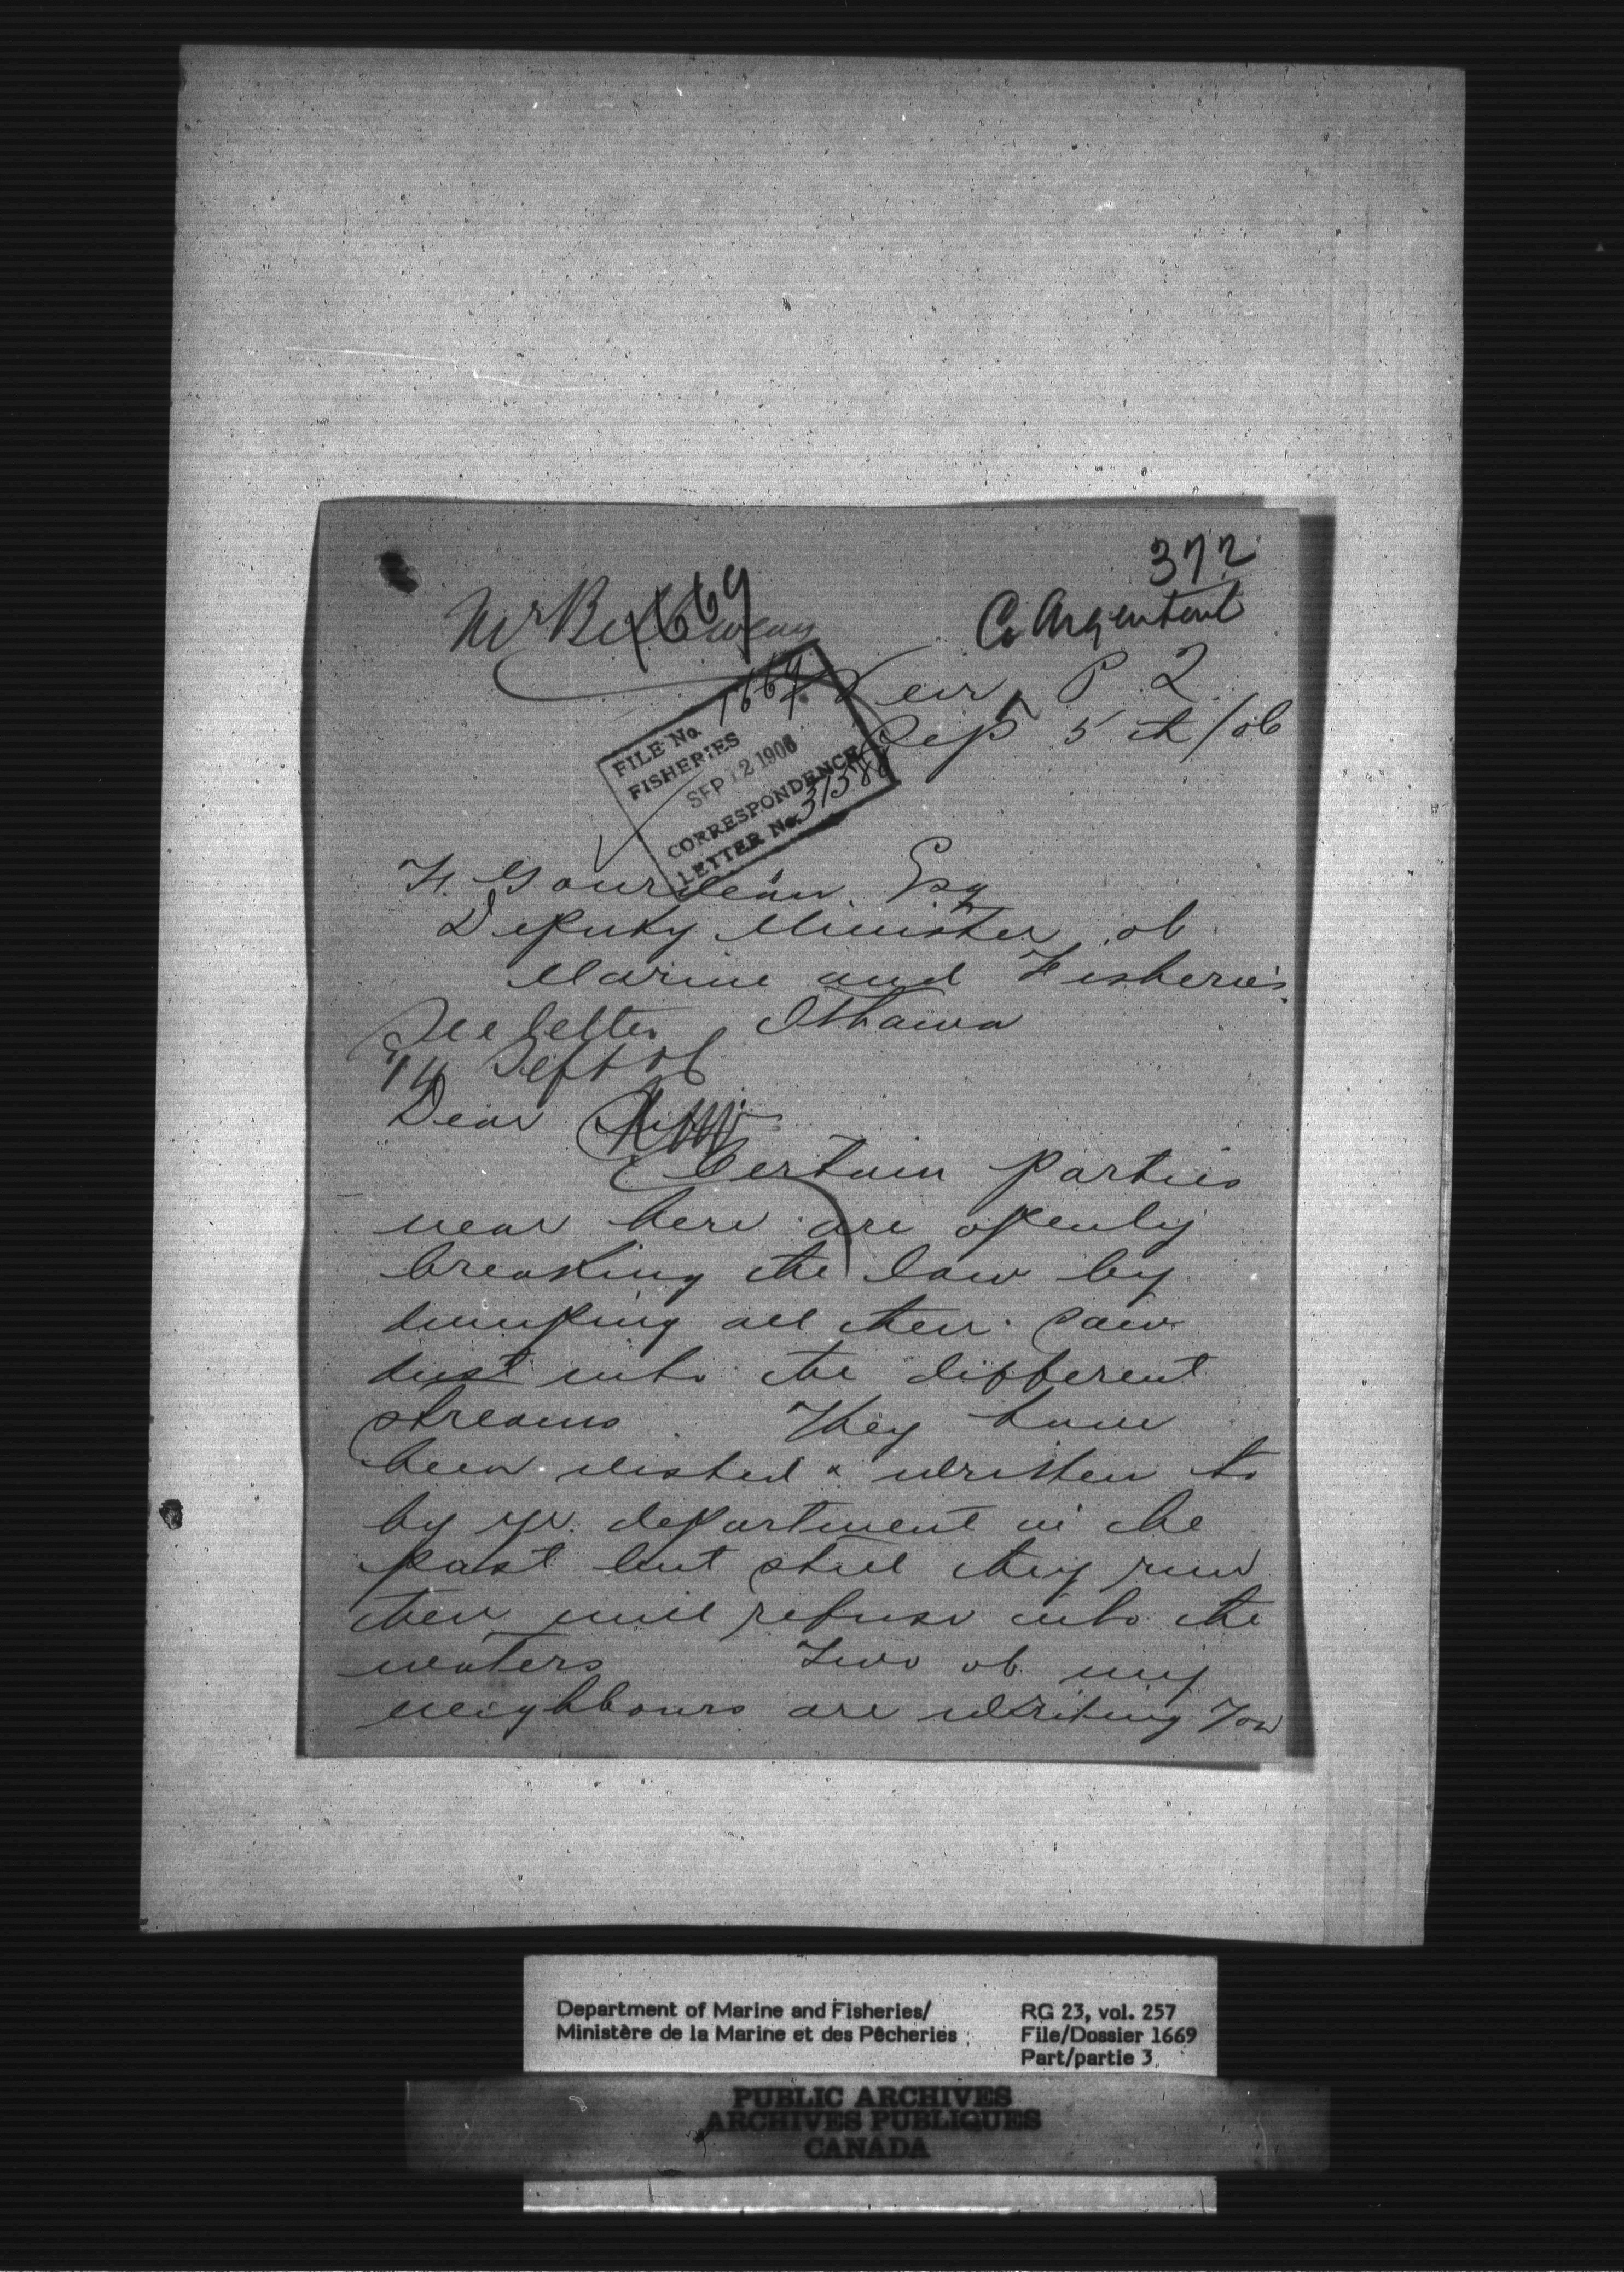 372
Mr
1669
Co Argenteuil
Weir P. Q.
Sep 5th/06
FILE No. 1669
FISHERIES
SEP 12 1906
CORRESPONDENCE
LETTER No.
F. Gourdeau. Esq
Deputy Minister of
Marine and Fisheries.
Ottawa
See letter
14 Sept 06
Dear Sir
Certain parties
near here are openly
breaking the law by
dumping all their saw
dust into the different
streams. They have
been visited & written to
by yr. department in the
past but still they run
their mill refuse into the
waters Two of my
neighbours are writing you
Department of Marine and Fisheries/
Ministère de la Marine et des Pêcheries
RG 23, vol. 257
File/Dossier 1669
Part/partie 3
PUBLIC ARCHIVES
ARCHIVES PUBLIQUES
CANADA